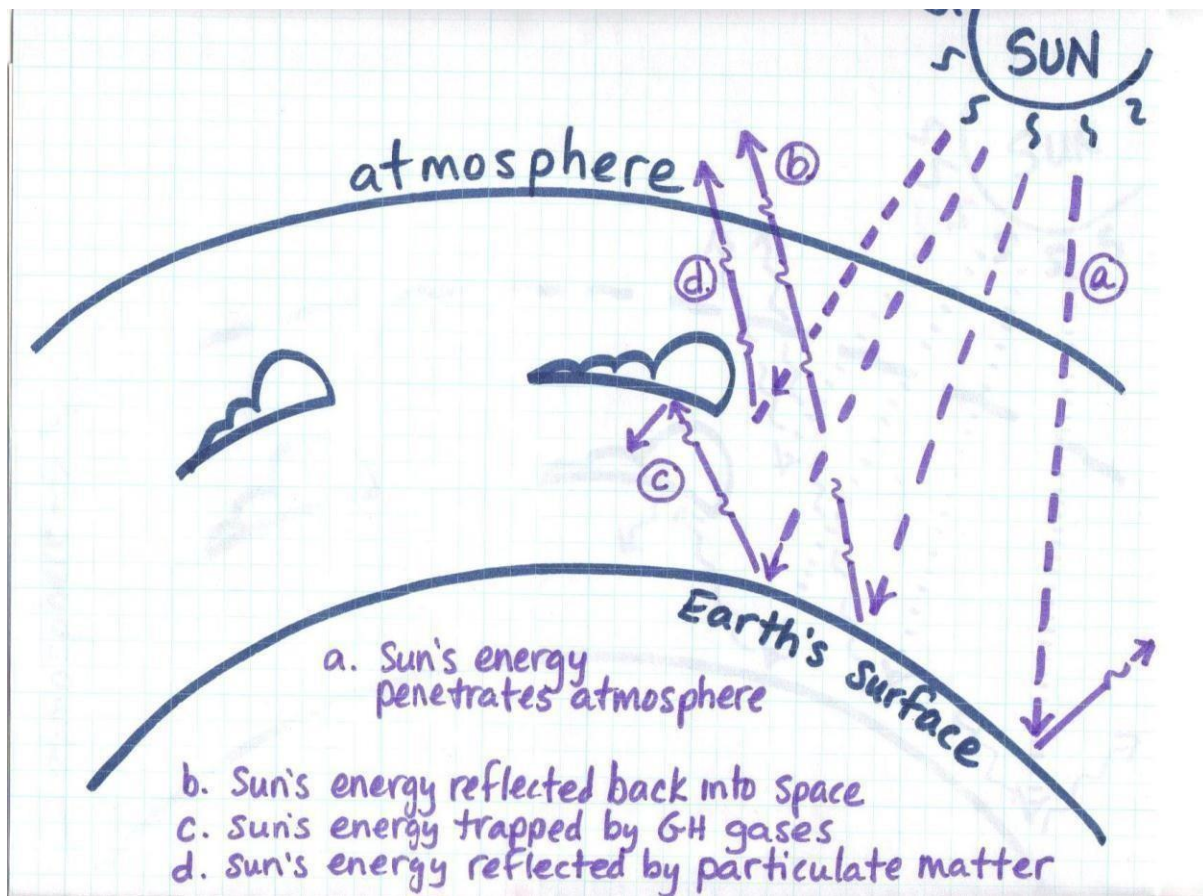 SUN
atmosphere
b
d.
a.
c
Earth's surface
a. Sun's energy
penetrates atmosphere
b. Sun's energy reflected back into space
c. Sun's energy trapped by GH gases
d. Sun's energy reflected by particulate matter